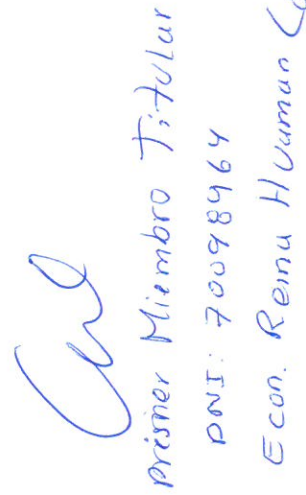 Prismer Miembro Titular
DNI: 70098464
Econ. Remu Huaman